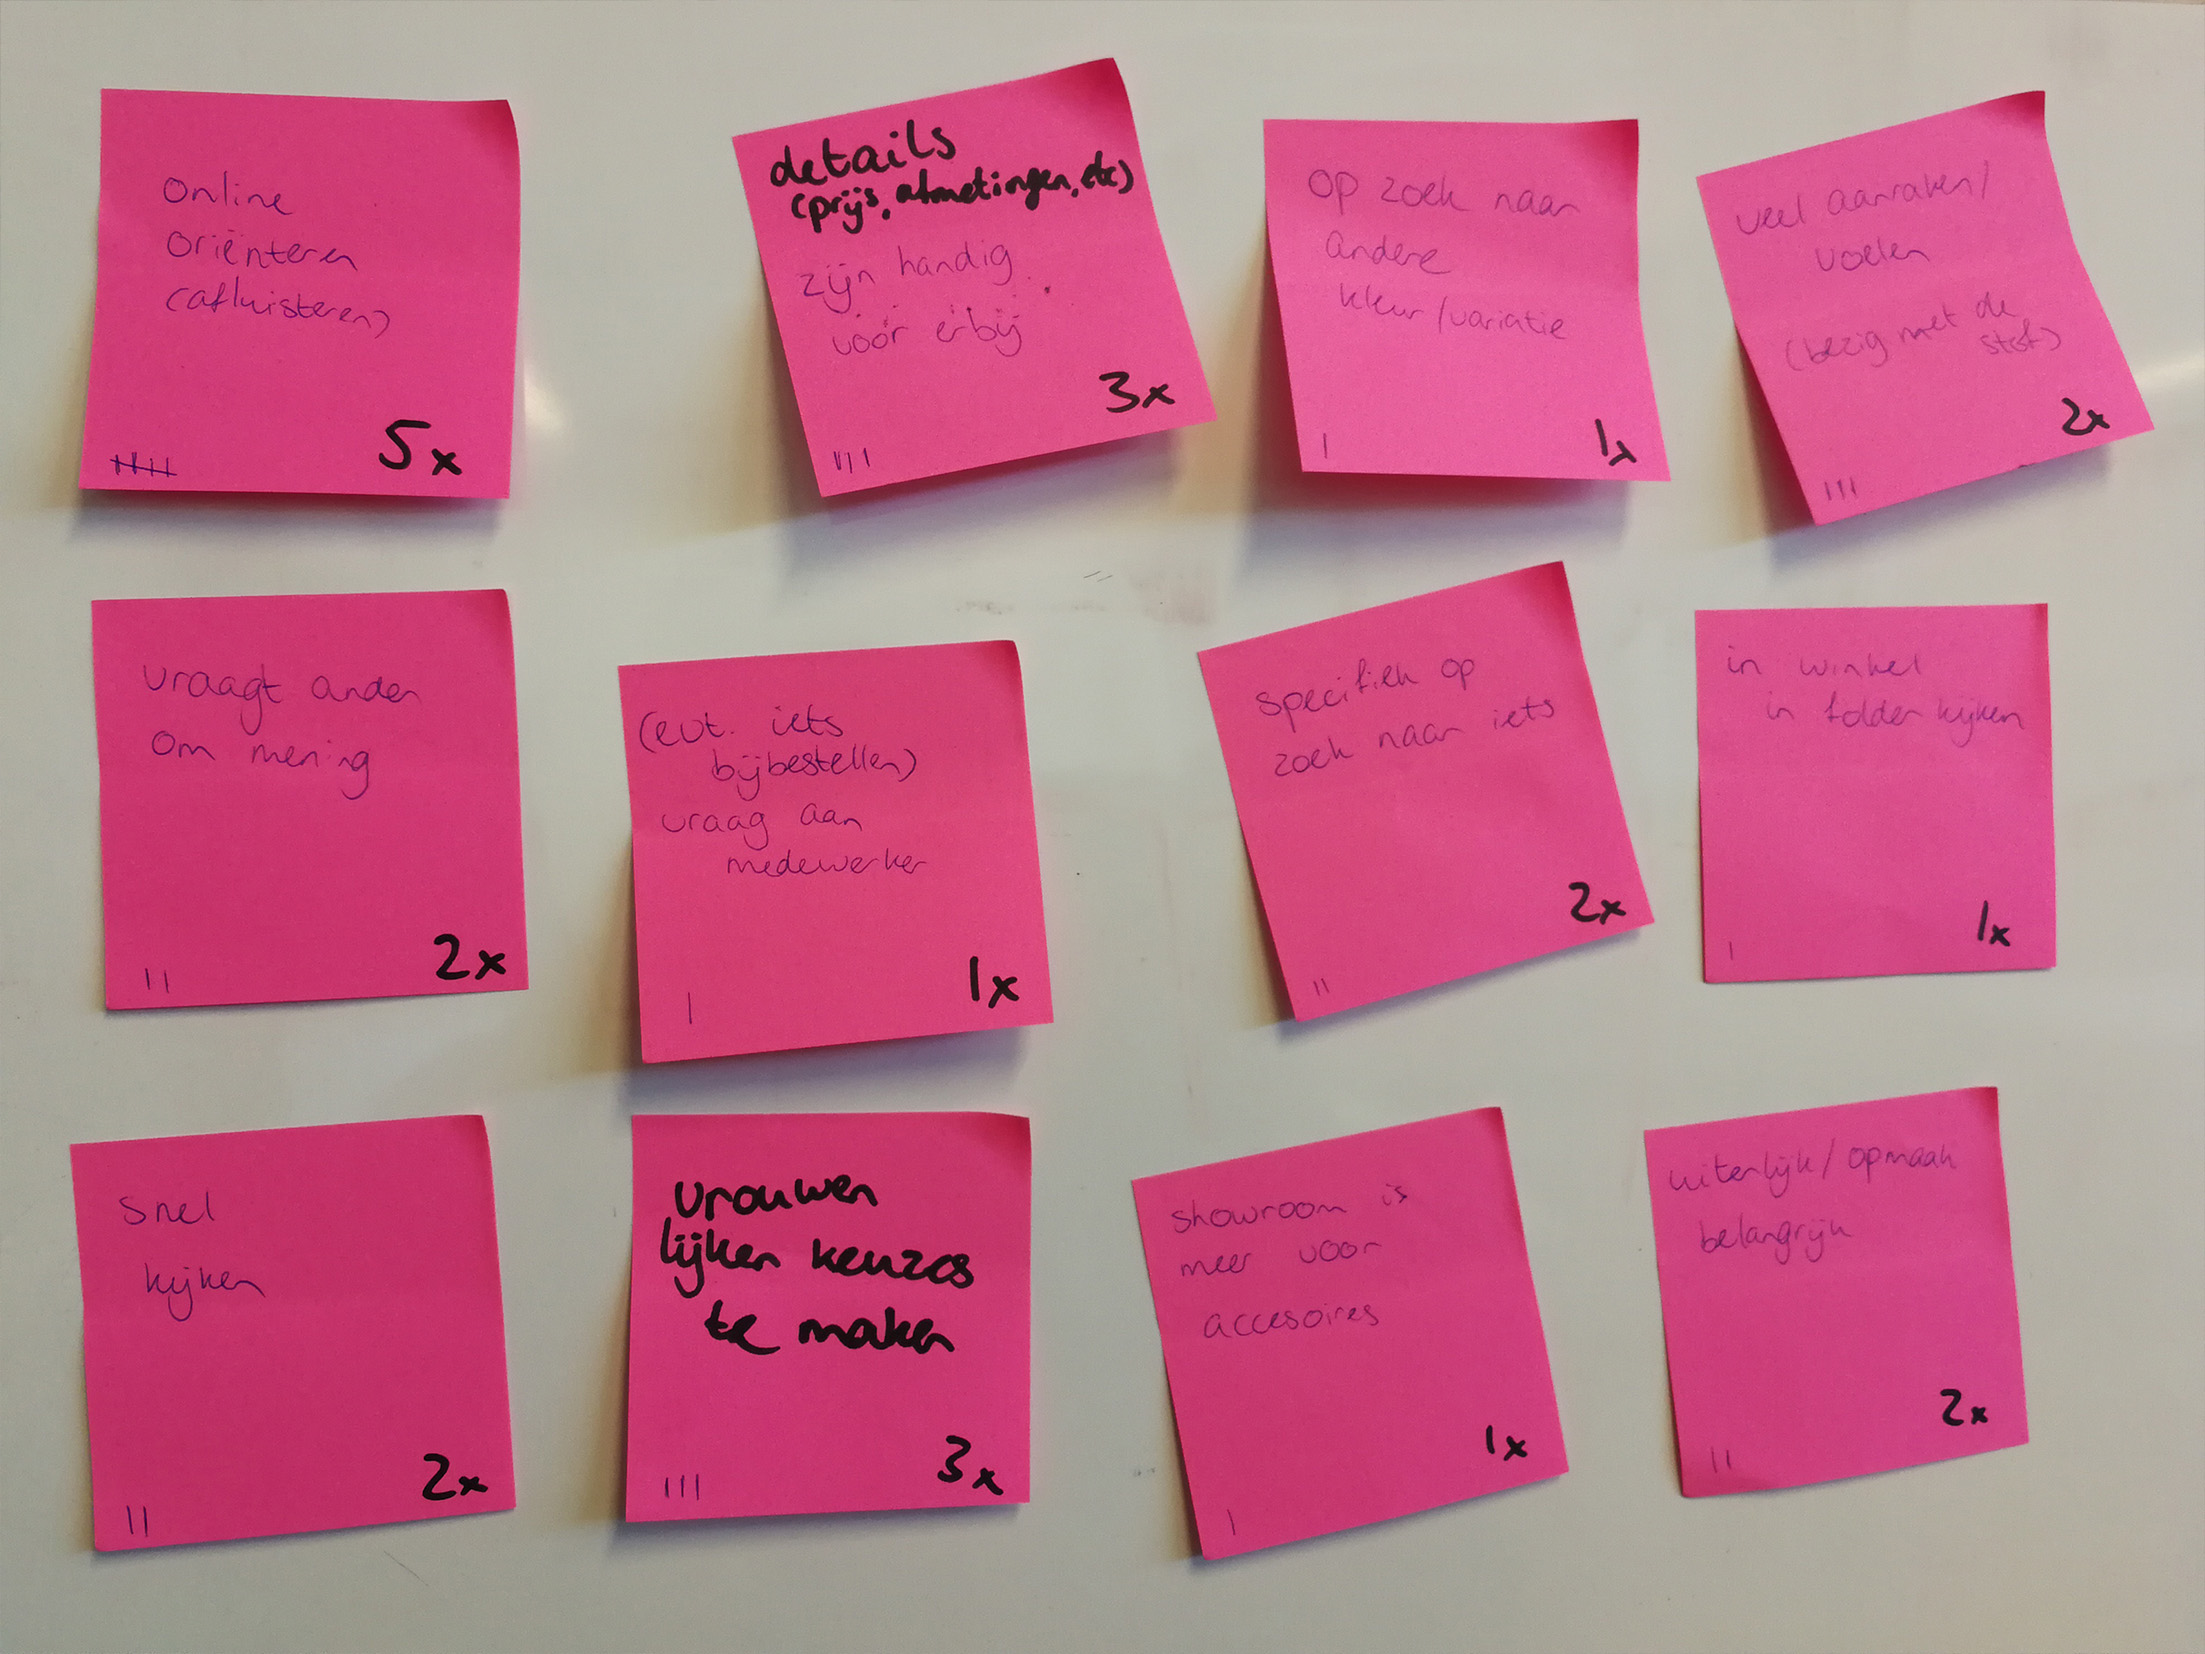 Online
Oriënteren
(afluisteren)
5x
details
(prijs, afmetingen, etc)
zijn handig
voor erbij
3x
op zoek naar
andere
kleur/variatie
1x
veel aanraken/
voelen
(bezig met de
stof)
2x
vraagt ander
om mening
2x
(evt. iets
bijbestellen)
vraag aan
medewerker
1x
specifiek op
zoek naar iets
2x
in winkel
in folder kijken
1x
snel
kijken
2x
Vrouwen
lijken keuzes
te maken
3x
showroom is
meer voor
accesoires
1x
uiterlijk/opmaak
belangrijk
2x